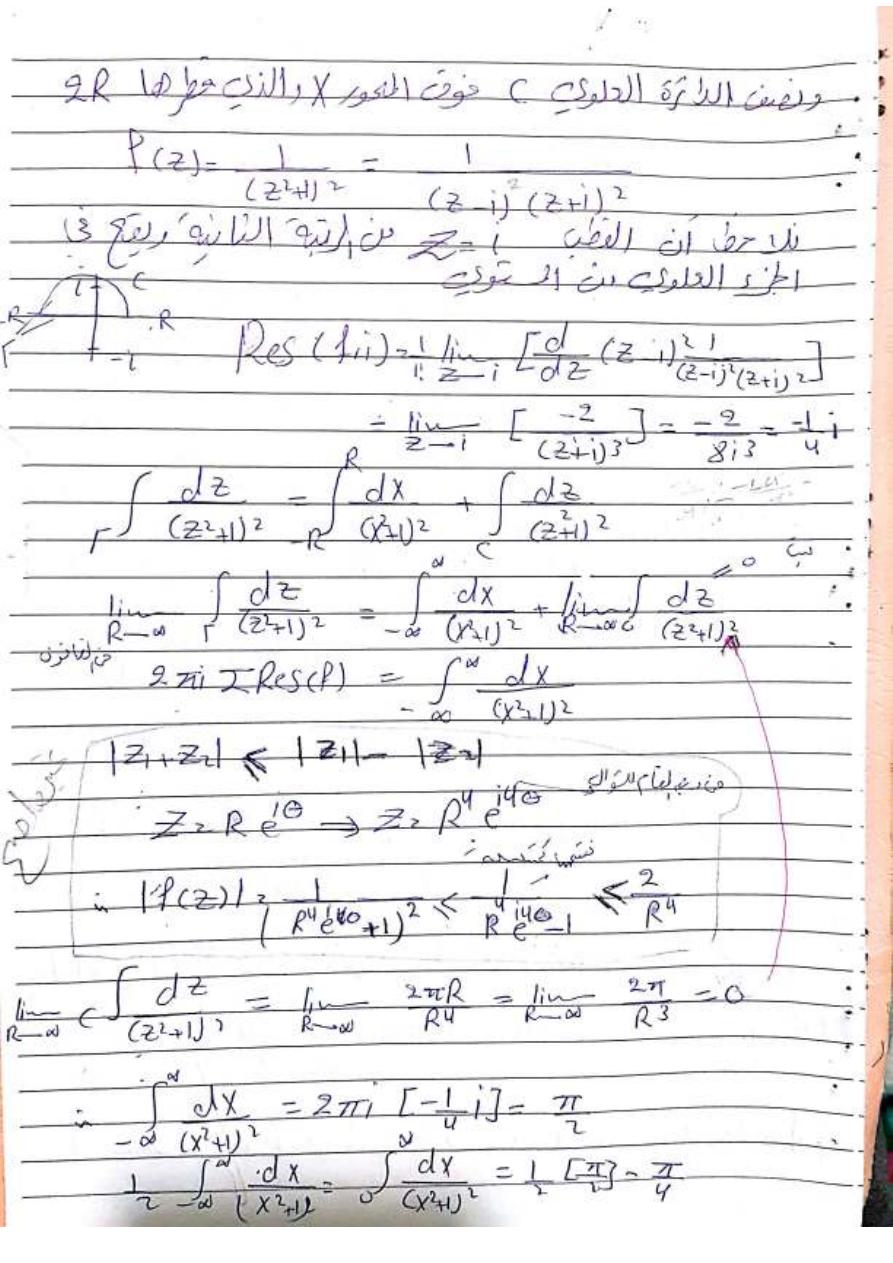 ونصف الدائرة العلوي C فوق المحور X والذي قطرها 2R
f(z) = 1/(z²+1)² = 1/((z-i)²(z+i)²)
نلاحظ أن القطب Z=i من الرتبة الثانية ويقع في
الجزء العلوي من المستوي
i C
-R R
Γ -i
Res(f,i) = 1/1! lim z→i [d/dz (z-i)² 1/((z-i)²(z+i)²)]
= lim z→i [-2/(z+i)³] = -2/8i³ = -1/4 i
∫Γ dz/(z²+1)² = ∫-R^R dx/(x²+1)² + ∫C dz/(z²+1)²
lim R→∞ ∫Γ dz/(z²+1)² = ∫-∞^∞ dx/(x²+1)² + lim R→∞ ∫C dz/(z²+1)² = 0
2πi Σ Res(f) = ∫-∞^∞ dx/(x²+1)²
|z₁+z₂| ⩽ |z₁| - |z₂|
Z = R e^{iθ} → Z = R⁴ e^{i4θ}
∴ |f(z)| = 1/(R⁴e^{i4θ}+1)² ⩽ 1/(R⁴e^{i4θ}-1) ⩽ 2/R⁴
lim R→∞ ∫C dz/(z²+1)² = lim R→∞ 2πR/R⁴ = lim R→∞ 2π/R³ = 0
∴ ∫-∞^∞ dx/(x²+1)² = 2πi [-1/4 i] = π/2
1/2 ∫-∞^∞ dx/(x²+1)² = ∫0^∞ dx/(x²+1)² = 1/2 [π/2] = π/4